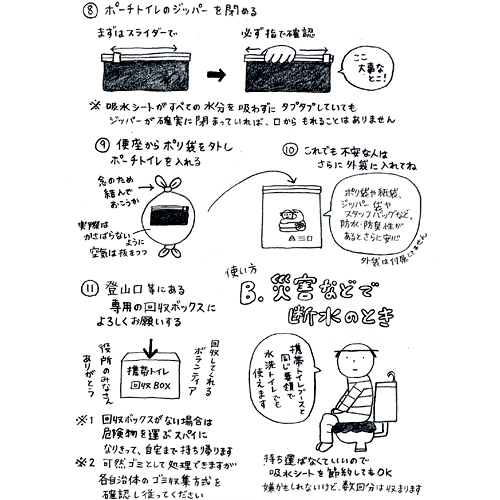 ⑧ ポーチトイレのジッパーを閉める
まずはスライダーで
必ず指で確認
ここ
大事な
とこ!
※ 吸水シートがすべての水分を吸わずに タプタプしていても
ジッパーが確実に閉まっていれば、口からもれることはありません
⑨ 便座からポリ袋を外し
ポーチトイレを入れる
念のため
結んで
おこうか
実際は
かさばらない
ように
空気は抜きつつ
⑩ これでも不安な人は
さらに外袋に入れてね
ポリ袋や紙袋、
ジッパー袋や
スタッフバッグなど。
防水・防臭性が
あるとさらに安心
外袋は付属しません
⑪ 登山口等にある
専用の回収ボックスに
よろしくお願いする
役所のみなさん
ありがとう
携帯トイレ
回収BOX
回収してくれる
ボランティア
※1 回収ボックスがない場合は
危険物を運ぶスパイに
なりきって、自宅まで持ち帰ります
※2 可燃ゴミとして処理できますが
各自治体のゴミ収集方式を
確認し従ってください
使い方
B. 災害などで
断水のとき
携帯トイレブースと
同じ要領で
水洗トイレでも
使えます
持ち運ばなくていいので
吸水シートを節約してもOK
嫌かもしれないけど、数回分は収まります